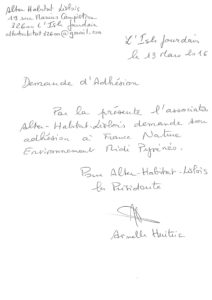 Alter Habitat Lislois
19 rue Marius Campistron
32600 L'Isle Jourdain
alterhabitat32600@gmail.com
L'Isle Jourdain
le 19 Mars le 16
Demande d'Adhésion
Par la présente l'association
Alter-Habitat-Lislois demande son
adhésion à France Nature
Environnement Midi Pyrénées.
Pour Alter-Habitat-Lislois
la Présidente
Armelle